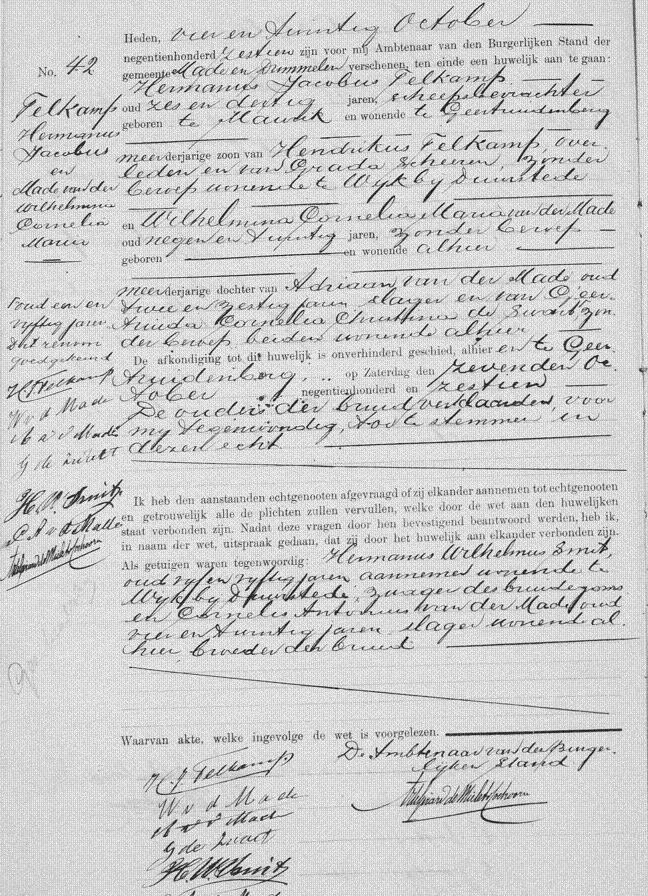 No. 42
Telkamp
Hermanus
Jacobus
en
Made van der
Wilhelmina
Cornelia
Maria
Heden, vier en twintig October
negentienhonderd zestien zijn voor mij Ambtenaar van den Burgerlijken Stand der
gemeente Made en Drimmelen verschenen, ten einde een huwelijk aan te gaan:
Hermanus Jacobus Telkamp
oud zes en dertig jaren, scheepsbevrachter
geboren te Maurik en wonende te Geertruidenberg
meerderjarige zoon van Hendrikus Telkamp, over-
leden en van Grada Scheren, zonder
beroep wonende te Wyk by Duurstede
en Wilhelmina Cornelia Maria van der Made
oud negen en twintig jaren, zonder beroep
geboren en wonende alhier
meerderjarige dochter van Adriaan van der Made oud
twee en zestig jaren, slager en van Geer-
truida Cornelia Christina de Swart zon-
der beroep, beiden wonende alhier
De afkondiging tot dit huwelijk is onverhinderd geschied, alhier en te Geer-
truidenberg op Zaterdag den zevenden Oc-
tober negentienhonderd en zestien
De ouders der bruid verklaarden, voor
my tegenwoordig, toe te stemmen in
dezen echt.
oud een en
vyftig jaar
goedgekeurd
H J Telkamp
W v d Made
A v d Made
H. W. Smit
C A v d Made
Ik heb den aanstaanden echtgenooten afgevraagd of zij elkander aannemen tot echtgenooten
en getrouwelijk alle de plichten zullen vervullen, welke door de wet aan den huwelijken
staat verbonden zijn. Nadat deze vragen door hen bevestigend beantwoord werden, heb ik,
in naam der wet, uitspraak gedaan, dat zij door het huwelijk aan elkander verbonden zijn.
Als getuigen waren tegenwoordig: Hermanus Wilhelmus Smit,
oud vyf en vyftig jaren, aannemer wonende te
Wyk by Duurstede, zwager des bruidegoms
en Cornelis Antonius van der Made oud
vier en twintig jaren, slager wonend al-
hier broeder der bruid
Waarvan akte, welke ingevolge de wet is voorgelezen.
De Ambtenaar van den Burger-
lyken Stand
H J Telkamp
W v d Made
A v d Made
G de Swart
H. W. Smit
C A v d Made